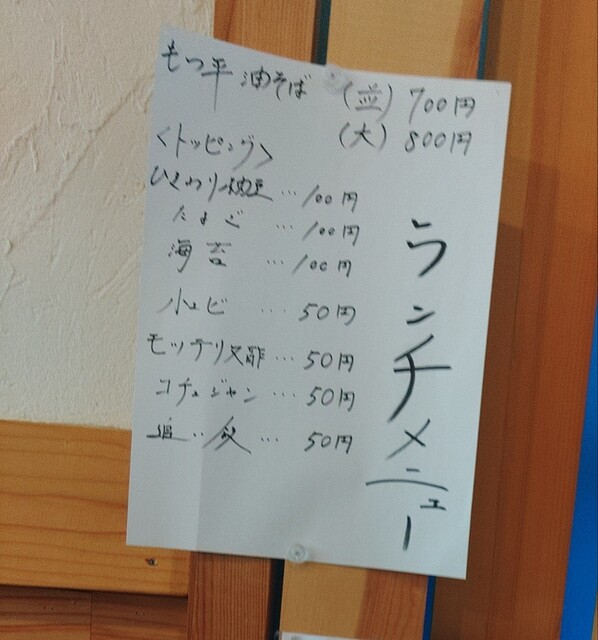 もつ平 油そば (並) 700円
(大) 800円
<トッピング>
ひきわり納豆 … 100円
たまご … 100円
海苔 … 100円
小エビ … 50円
50円
コチュジャン … 50円
50円
ランチメニュー